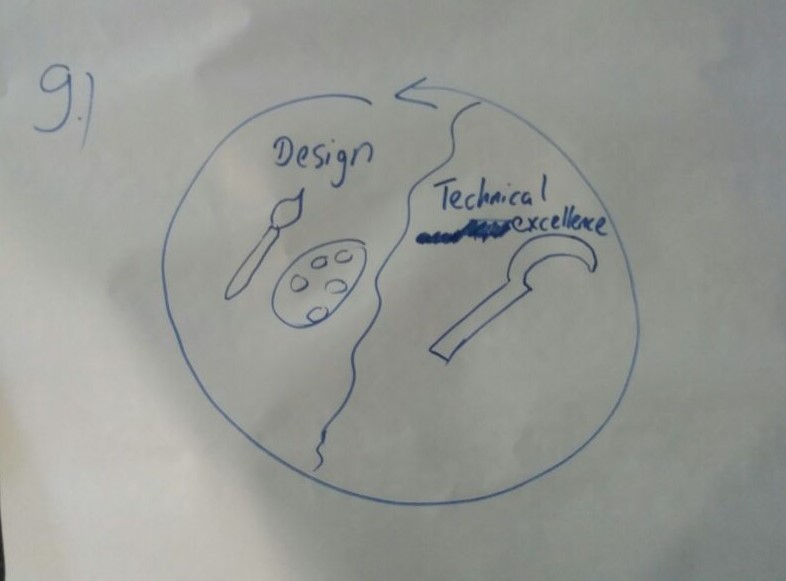 9.)
Design
Technical
excellence